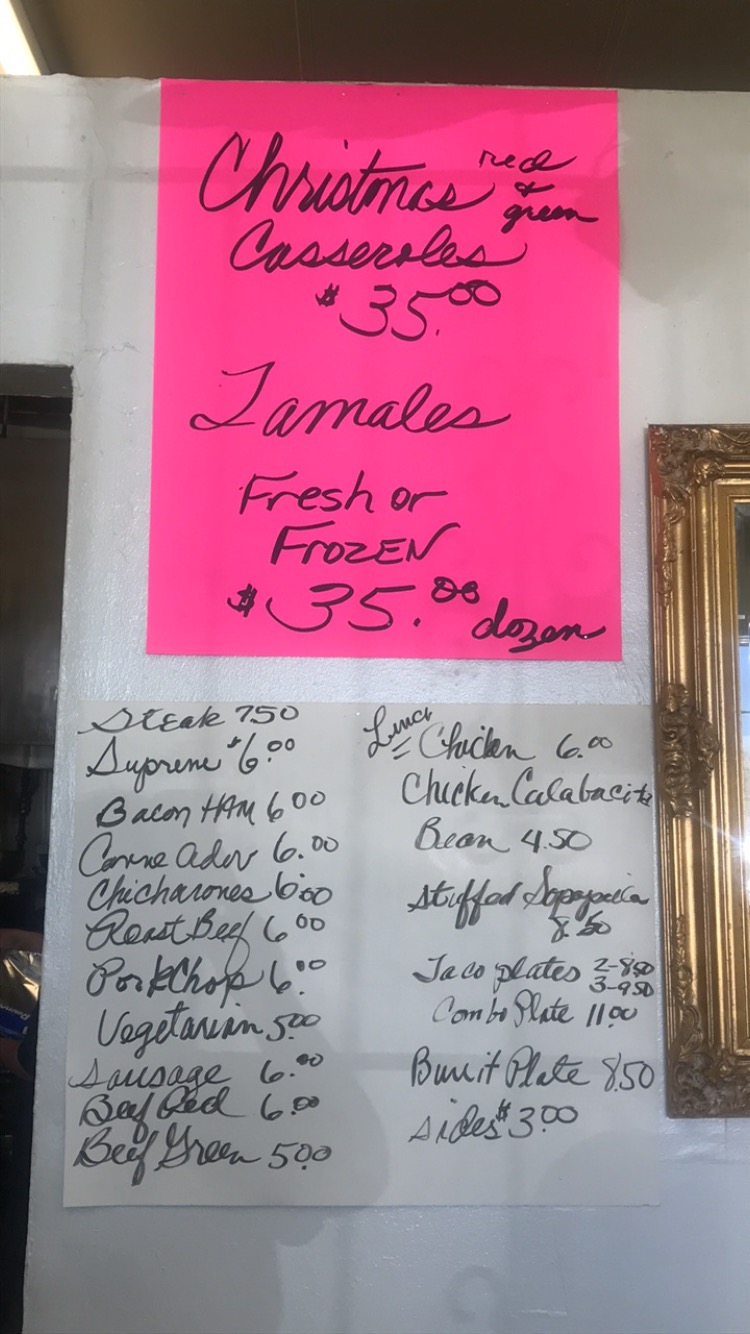 Christmas red
& green
Casseroles
$35.00
Tamales
Fresh or
FROZEN
$35.00 dozen
Steak 750
Supreme $6.00
Bacon HAM 6 00
Carne Adov 6.00
Chicharones 6.00
Roast Beef 6 00
PorkChop 6.00
Vegetarian 5.00
Sausage 6.00
Beef Red 6.00
Beef Green 5.00
Chicken 6.00
Chicken Calabacita
Bean 4.50
Stuffed Sopapilla
8.50
Taco plates 2-8.50
3-9.50
Combo Plate 11.00
Burrit Plate 8.50
sides $3.00